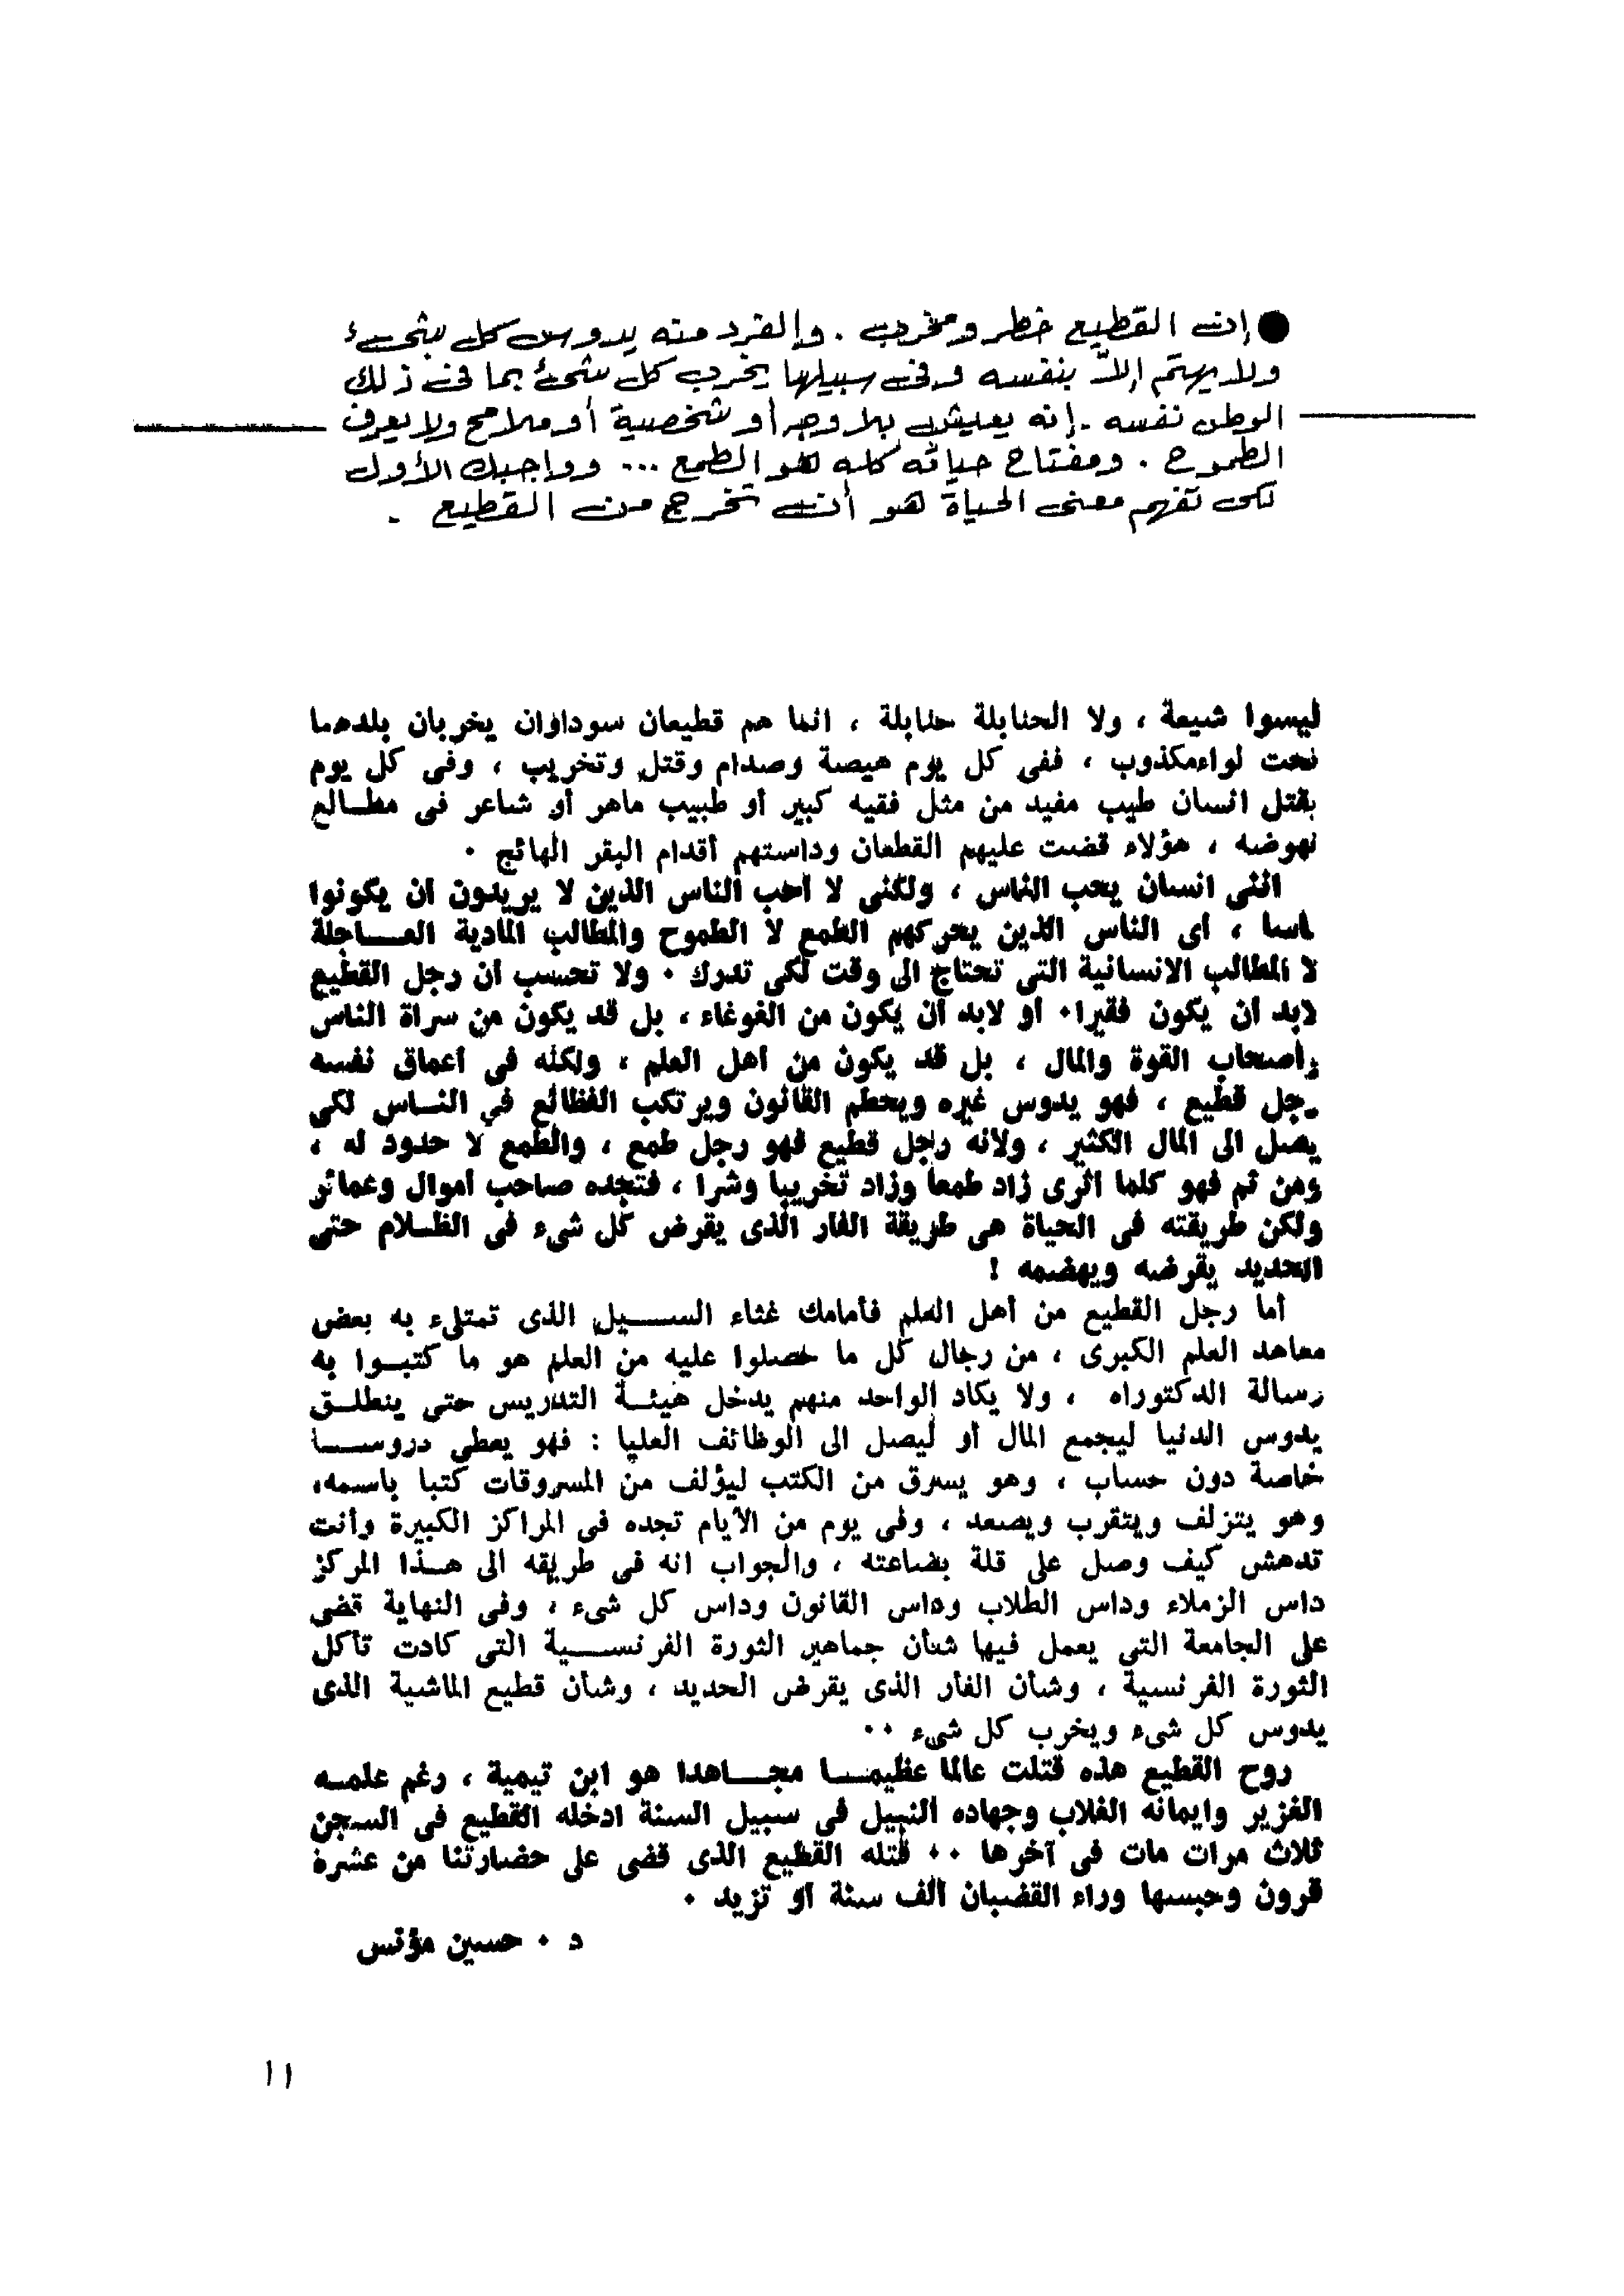 ● إن القطيع خطر ومخرب . والفرد منه يدوس كل شىء
ولا يهتم إلا بنفسه وفى سبيلها يخرب كل شىء بما فى ذلك
الوطن نفسه . إنه يعيش بلا وجه أو شخصية أو ملامح ولا يعرف
الطموح . ومفتاح حياته كله هو الطمع ... وواجبك الأول
لكى تفهم معنى الحياة هو أن تخرج من القطيع .
ليسوا شيعة ، ولا الحنابلة حنابلة ، انما هم قطيعان سوداوان يخربان بلدهما
تحت لواء مكذوب ، ففى كل يوم هيصة وصدام وقتل وتخريب ، وفى كل يوم
يقتل انسان طيب مفيد من مثل فقيه كبير أو طبيب ماهر أو شاعر فى مطـالع
نهوضه ، هؤلاء قضت عليهم القطعان وداستهم أقدام البقر الهائج .
اننى انسان يحب الناس ، ولكنى لا أحب الناس الذين لا يريدون أن يكونوا
ناسا ، أى الناس الذين يحركهم الطمع لا الطموح والمطالب المادية العـــاجلة
لا المطالب الانسانية التى تحتاج الى وقت لكى تدرك . ولا تحسب أن رجل القطيع
لابد أن يكون فقيرا. أو لابد أن يكون من الغوغاء ، بل قد يكون من سراة الناس
وأصحاب القوة والمال ، بل قد يكون من أهل العلم ، ولكنه فى أعماق نفسه
رجل قطيع ، فهو يدوس غيره ويحطم القانون ويرتكب الفظائع في النـاس لكى
يصل الى المال الكثير ، ولأنه رجل قطيع فهو رجل طمع ، والطمع لا حدود له ،
ومن ثم فهو كلما اثرى زاد طمعا وزاد تخريبا وشرا ، فتجده صاحب أموال وعمائر
ولكن طريقته فى الحياة هى طريقة الفار الذى يقرض كل شىء فى الظـلام حتى
الحديد يقرضه ويهضمه !
أما رجل القطيع من أهل العلم فأمامك غثاء الســـيل الذى تمتلىء به بعض
معاهد العلم الكبرى ، من رجال كل ما حصلوا عليه من العلم هو ما كتبـوا به
رسالة الدكتوراه ، ولا يكاد الواحد منهم يدخل هيئـة التدريس حتى ينطلـق
يدوس الدنيا ليجمع المال أو ليصل الى الوظائف العليا : فهو يعطي دروســـا
خاصة دون حساب ، وهو يسرق من الكتب ليؤلف من المسروقات كتبا باسمه،
وهو يتزلف ويتقرب ويصعد ، وفى يوم من الأيام تجده فى المراكز الكبيرة وأنت
تدهش كيف وصل على قلة بضاعته ، والجواب انه فى طريقه الى هـذا المركز
داس الزملاء وداس الطلاب وداس القانون وداس كل شىء ، وفى النهاية قضى
على الجامعة التى يعمل فيها شأن جماهير الثورة الفرنســـية التى كادت تأكل
الثورة الفرنسية ، وشأن الفأر الذى يقرض الحديد ، وشأن قطيع الماشية الذى
يدوس كل شىء ويخرب كل شىء ..
روح القطيع هذه قتلت عالما عظيمـــا مجـــاهدا هو ابن تيمية ، رغم علمـه
الغزير وايمانه الغلاب وجهاده النبيل فى سبيل السنة ادخله القطيع فى السجن
ثلاث مرات مات فى آخرها .. قتله القطيع الذى قضى على حضارتنا من عشرة
قرون وحبسها وراء القضبان ألف سنة أو تزيد .
د . حسين مؤنس
١١